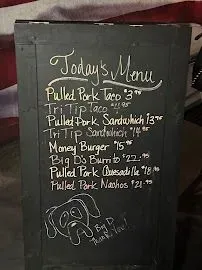 Today's Menu
Pulled Pork Taco $3.95
Tri Tip Taco
Pulled Pork Sandwhich $13.95
Tri Tip Sandwhich $14.95
Money Burger $15.95
Big D's Burrito $22.95
Pulled Pork Quesadilla $18.95
Pulled Pork Nachos $21.95
Big
Thank You!